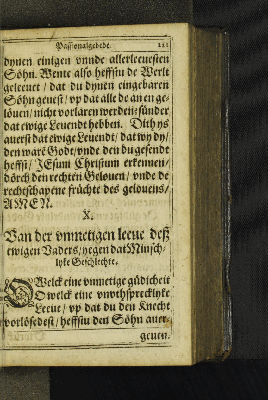 Passionalgebede. 111
dynen einigen vnnde allerleeuesten
Söhn. Wente also hefftu de Werlt
geleeuet / dat du dynen eingebaren
Söhn geuest / vp dat alle de an en ge-
löuen / nicht vorlaren werden: sünder
dat ewige Leuendt hebben. Dith ys
auerst dat ewige Leuendt / dat wy dy /
den warē Godt / vnde den du gesendt
heffst / JEsum Christum erkennen /
dörch den rechten Gelouen / vnde de
rechtschapene früchte des gelouens /
AMEN.
X.
Van der vnmetigen leeue deß
ewigen Vaders / yegen dat Minsch-
lyke Geschlechte.
O Welck eine vnmetige güdicheit
O welck eine vnvthsprecklyke
Leeue / vp dat du den Knecht
vorlösedest / hefftu den Söhn auer-
geuen.